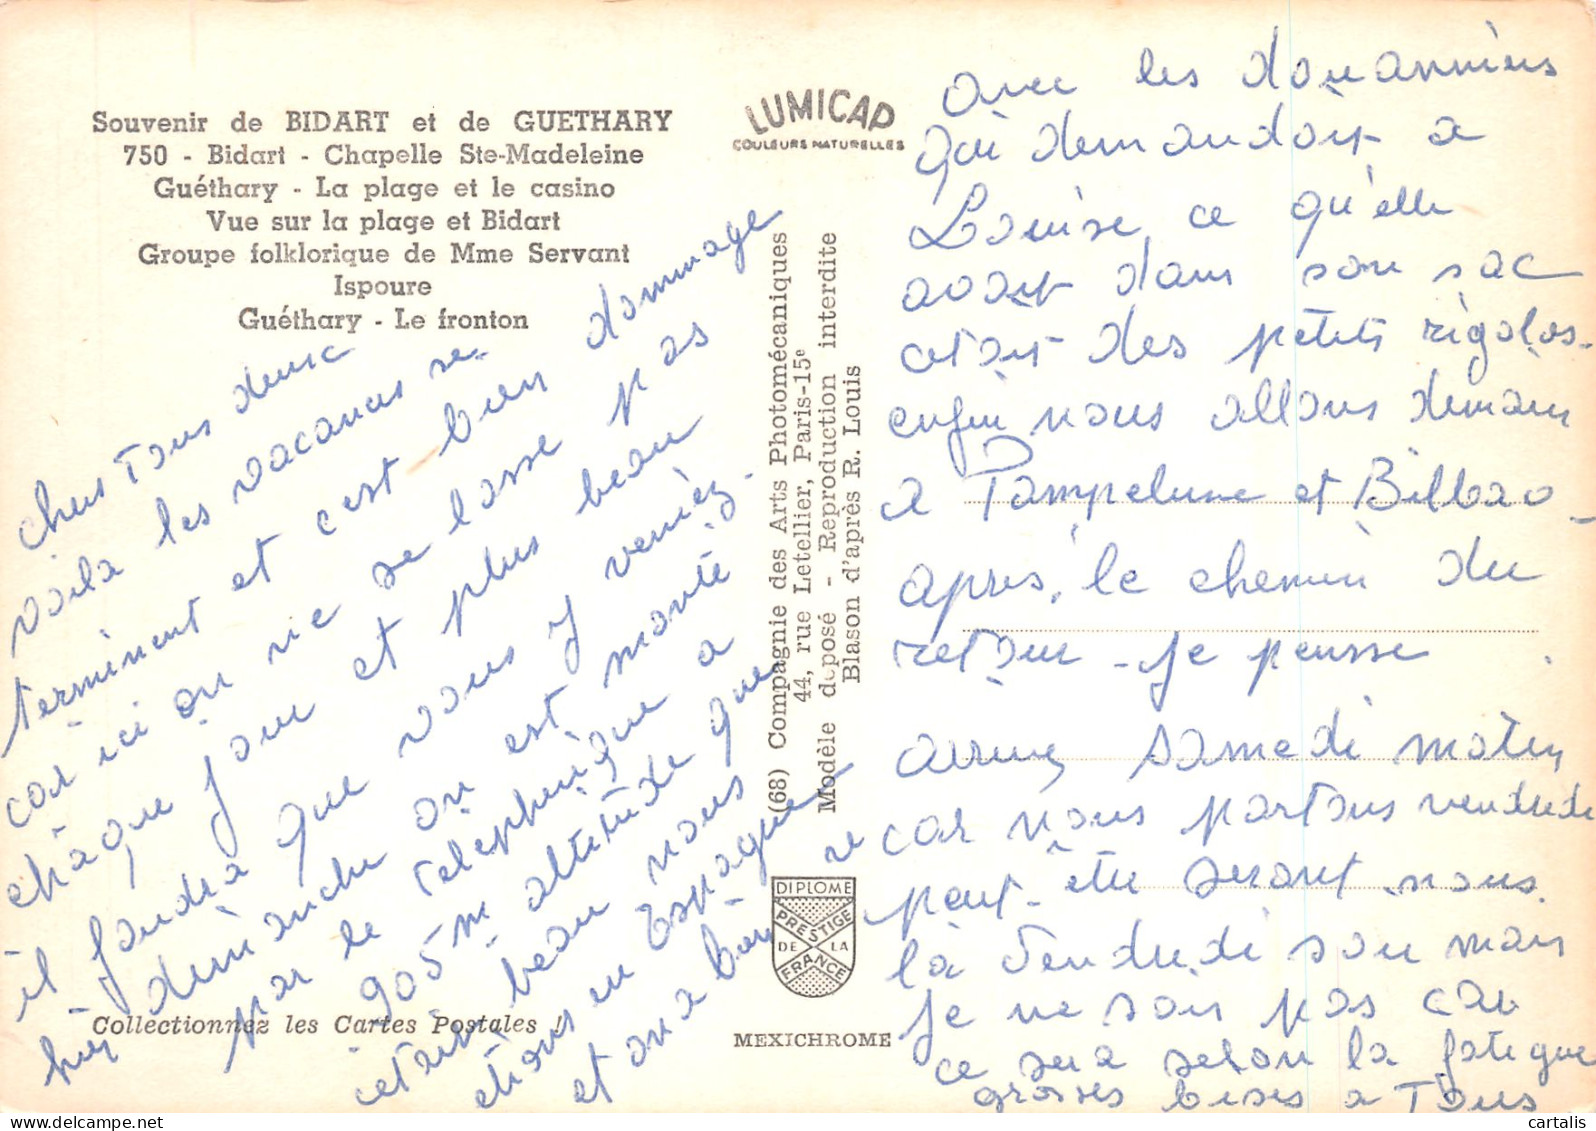 Souvenir de BIDART et de GUETHARY
750 - Bidart - Chapelle Ste-Madeleine
Guéthary - La plage et le casino
Vue sur la plage et Bidart
Groupe folklorique de Mme Servant
Ispoure
Guéthary - Le fronton
LUMICAP
COULEURS NATURELLES
chers Tous deux
voila les vacances se
terminent et c'est bien dommage
car ici on ne se lasse pas
chaque jour et plus beau
il faudra que vous y veniez.
hier dimanche on est monté
par le telepherique a
905m altitude que
cetait beau nous
etions en Espagne
et on a bien re
Collectionnez les Cartes Postales !
(68) Compagnie des Arts Photomécaniques
44, rue Letellier, Paris-15e
Modèle déposé - Reproduction interdite
Blason d'après R. Louis
DIPLOME
PRESTIGE
DE LA
FRANCE
MEXICHROME
avec les douanniers
qui demandait a
Louise ce qu'elle
avait dans son sac
cetait des petits rigolos-
enfin nous allons demain
a Pampelune et Bilbao -
après, le chemin du
retour - je pensse
arrivez samedi matin
car nous partons vendredi
peut-être seront nous
là Vendredi soir mais
je ne sais pas car
ce sera selon la fatigue
grosses bises a Tous
cartalis - delcampe.net